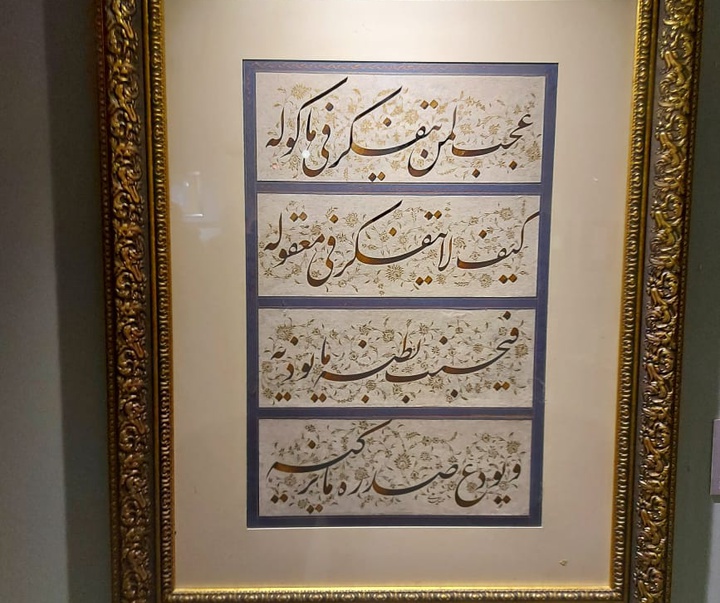 عجب لمن يتفكر فى ماكوله
كيف لا يتفكر فى معقوله
فيجنب بطنه ما يوذيه
ويودع صدره ما يزكيه